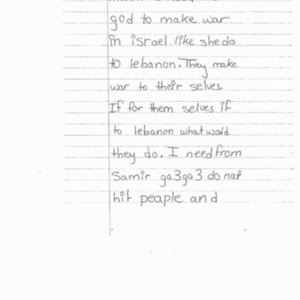 god to make war
in israel like she do
to lebanon. They make
war to their selves.
If for them selves if
to lebanon what would
they do. I need from
Samir ga3ga3 do not
hit peaple and